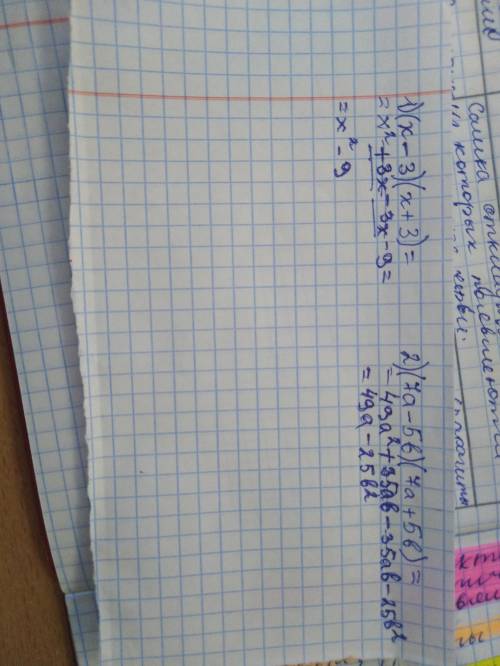 1)(x-3)(x+3)=
=x²+3x-3x-9=
=x²-9
2)(7a-5b)(7a+5b)=
=49a²+35ab-35ab-25b²
=49a-25b²
Самка
которых